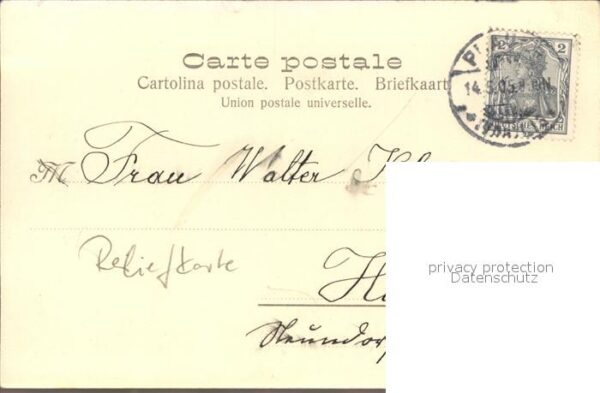 Carte postale
Cartolina postale. Postkarte. Briefkaart
Union postale universelle.
2 2
14.5.05.
REICH
M Frau Walter Kl
Reliefkarte
H
Neundor
privacy protection
Datenschutz